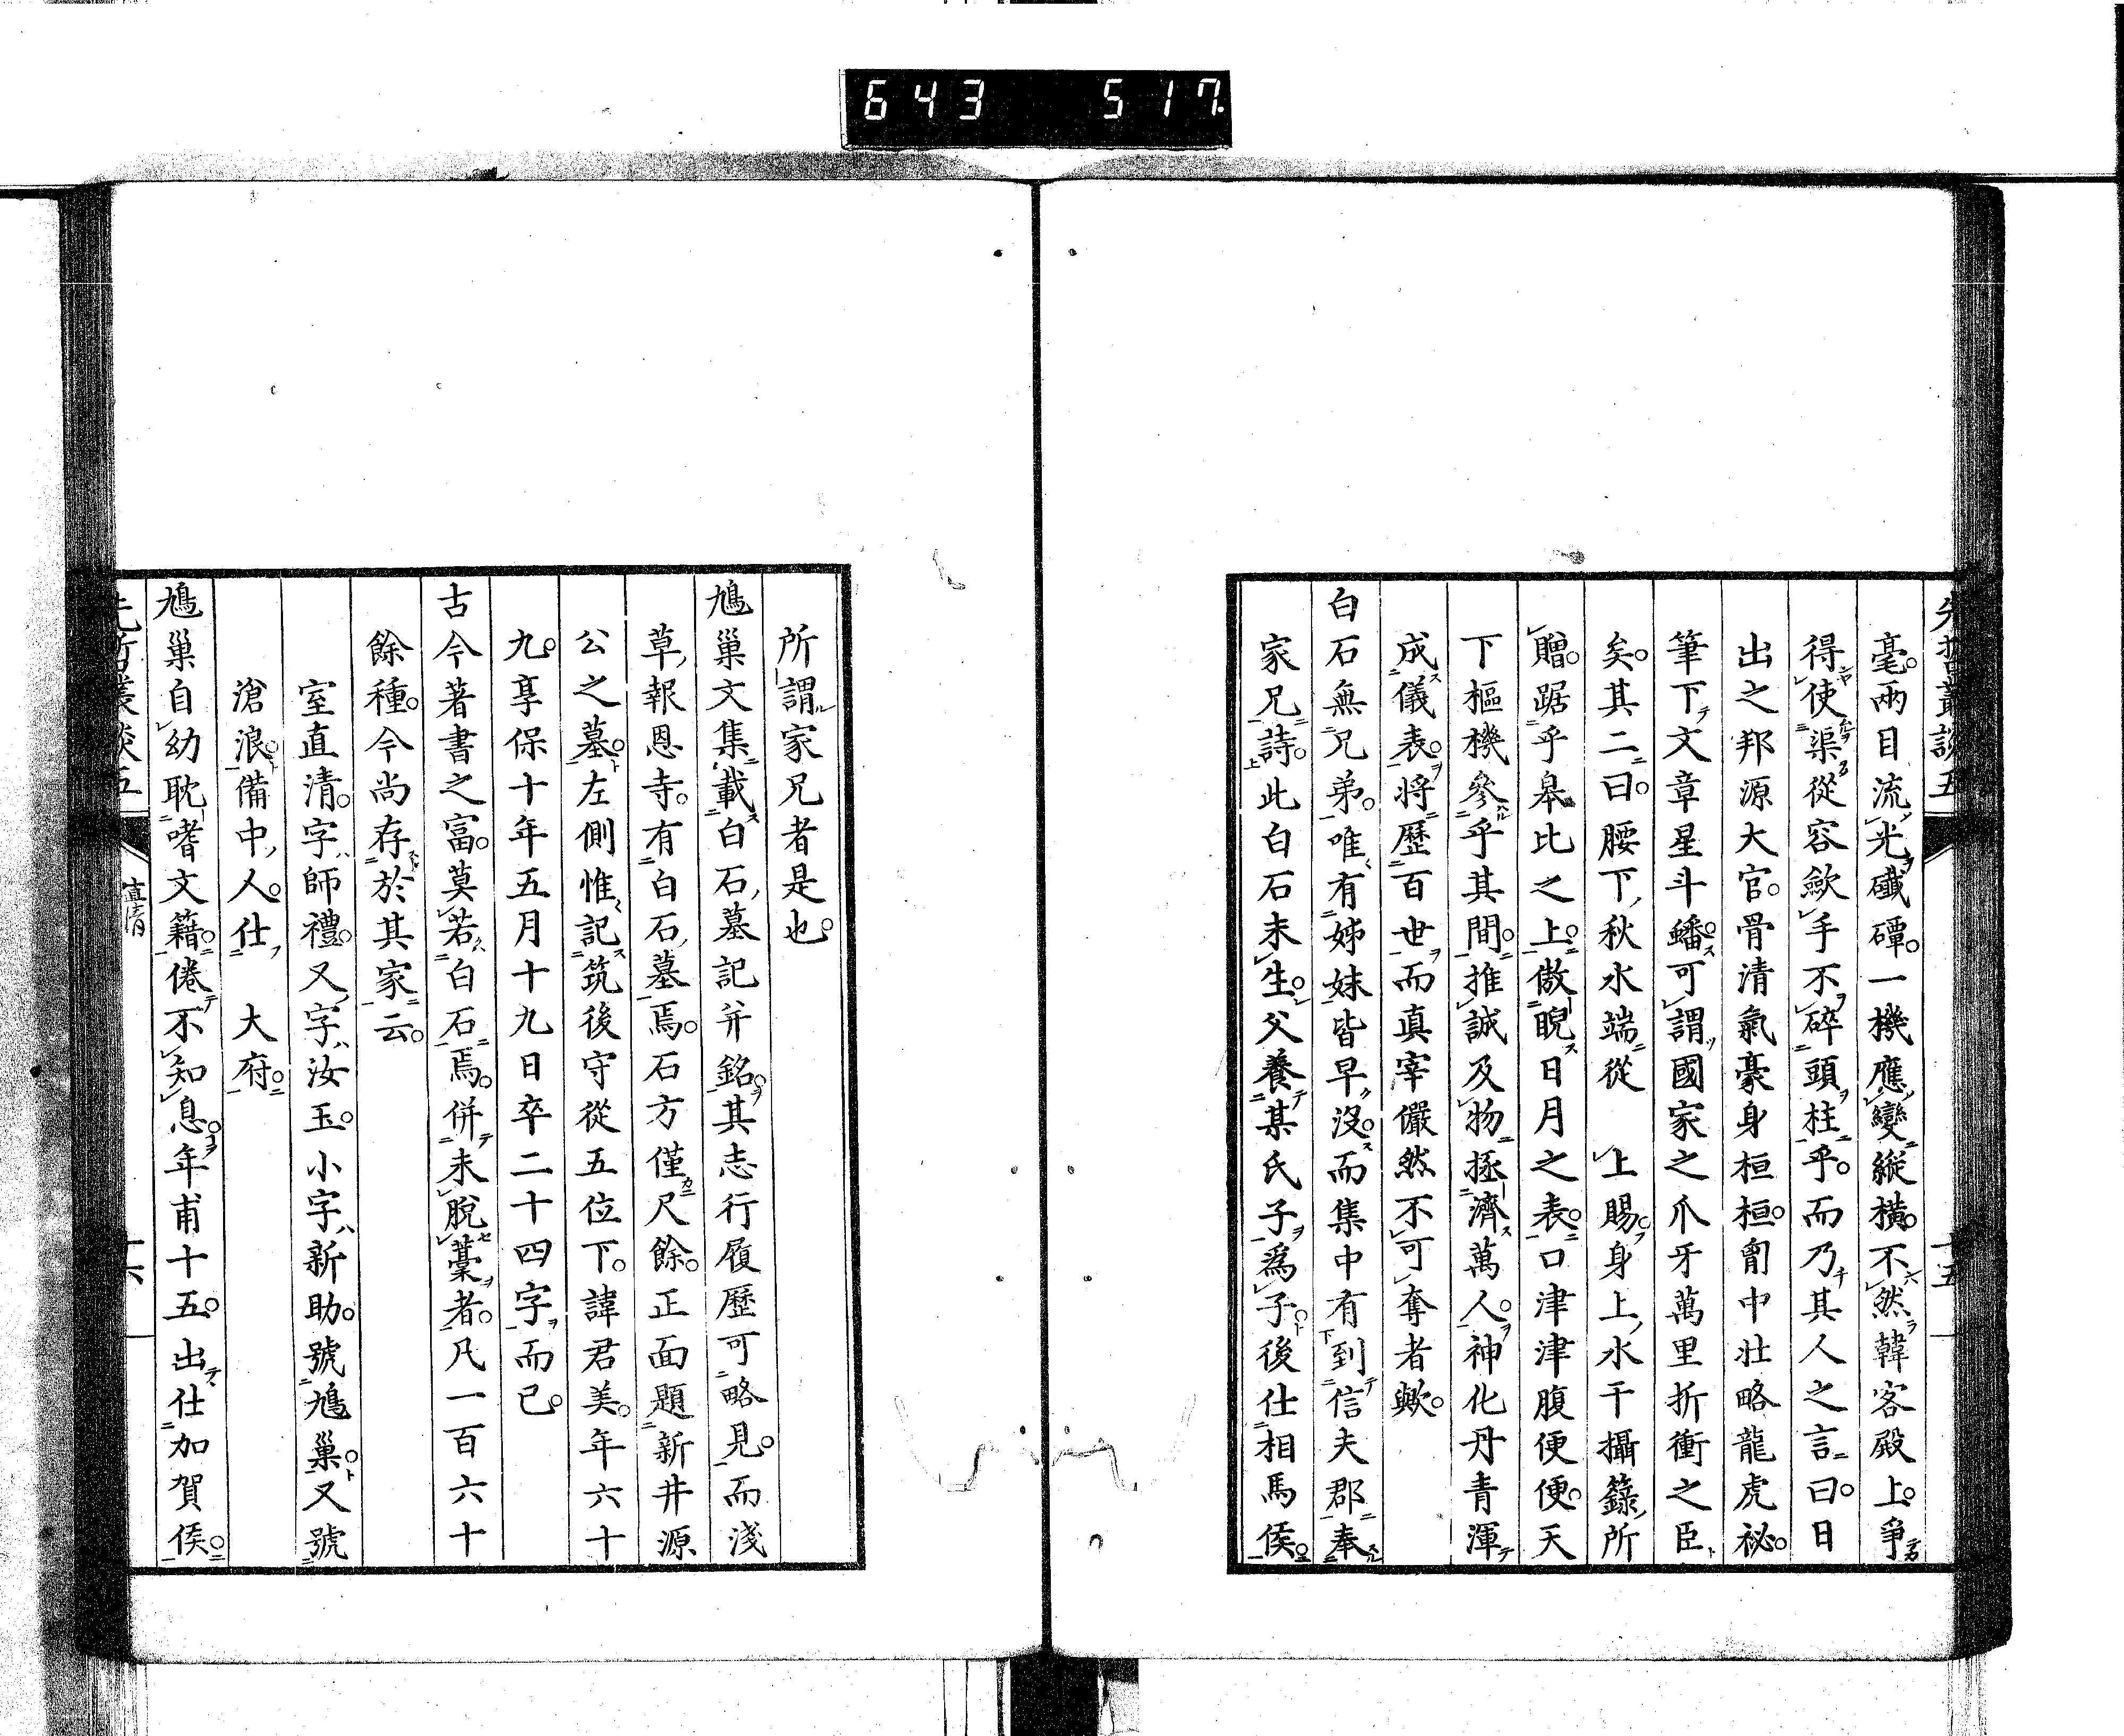 643 517
先哲叢談五
十五
毫兩目流光礮磹一機應變縱橫不然韓客殿上爭
得使渠從容歛手不碎頭柱乎而乃其人之言曰日
出之邦源大官骨清氣豪身桓桓胷中壯略龍虎祕
筆下文章星斗蟠可謂國家之爪牙萬里折衝之臣
矣其二曰腰下秋水端從 上賜身上水干攝籙所
贈踞乎皋比之上傲睨日月之表口津津腹便便天
下樞機參乎其間推誠及物拯濟萬人神化丹青渾
成儀表將歷百世而真宰儼然不可奪者歟
白石無兄弟唯有姊妹皆早沒而集中有到信夫郡奉
家兄詩此白石未生父養某氏子爲子後仕相馬侯
所謂家兄者是也
鳩巢文集載白石墓記并銘其志行履歷可略見而淺
草報恩寺有白石墓焉石方僅尺餘正面題新井源
公之墓左側惟記筑後守從五位下諱君美年六十
九享保十年五月十九日卒二十四字而已
古今著書之富莫若白石焉併未脫藁者凡一百六十
餘種今尚存於其家云
室直清字師禮又字汝玉小字新助號鳩巢又號
滄浪備中人仕 大府
鳩巢自幼耽嗜文籍倦不知息年甫十五出仕加賀侯
先哲叢談五
直清
十六